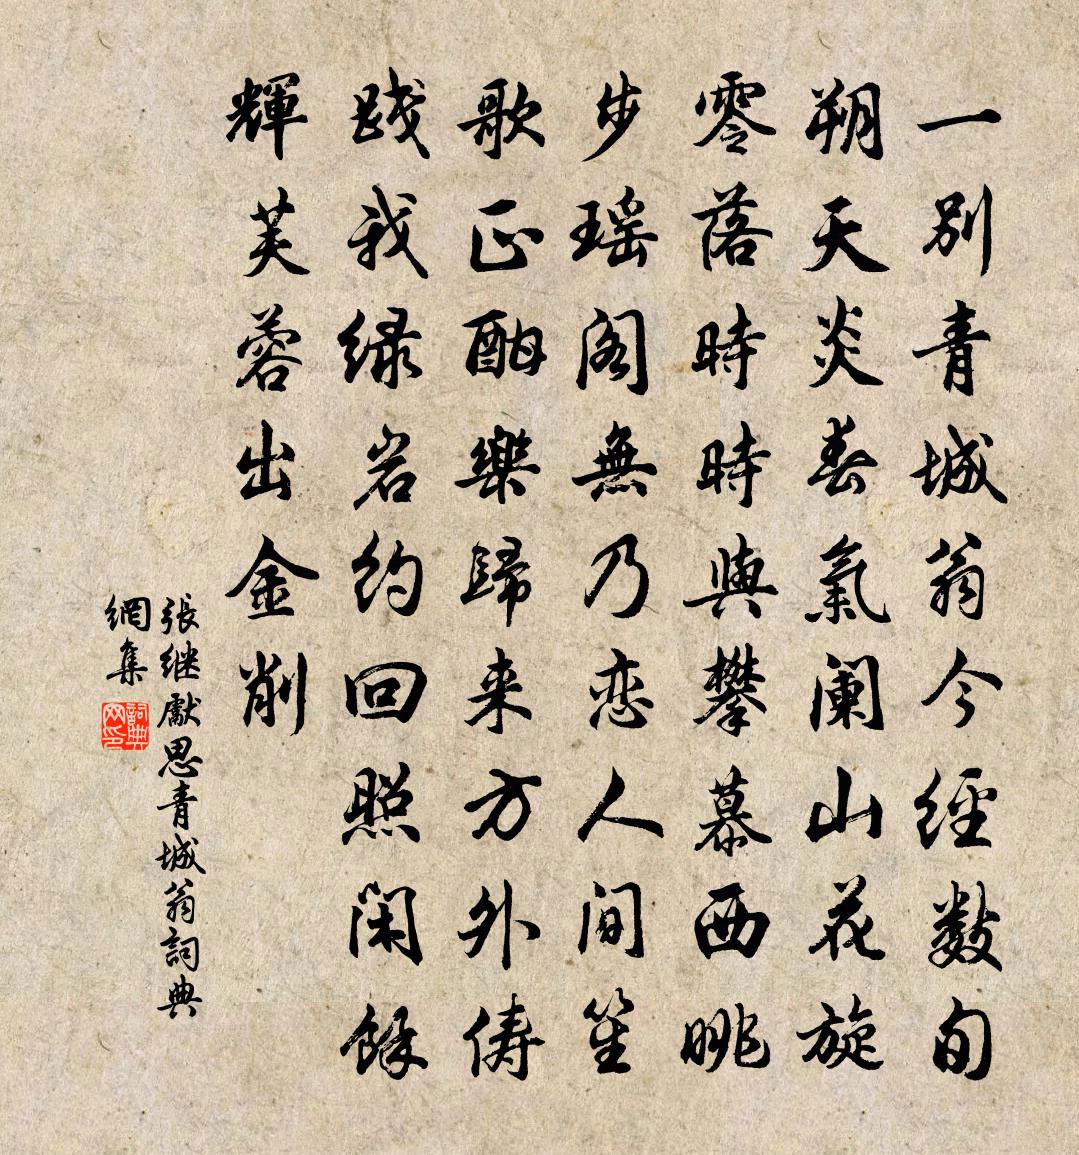 一别青城翁今經数旬
朔天炎春氣阑山花旋
零落時時與攀慕西眺
步瑶阁無乃恋人间笙
歌正酣樂歸来方外俦
践我绿岩约回照闲餘
輝芙蓉出金削
張继獻思青城翁詞典
網集
詞典
网印